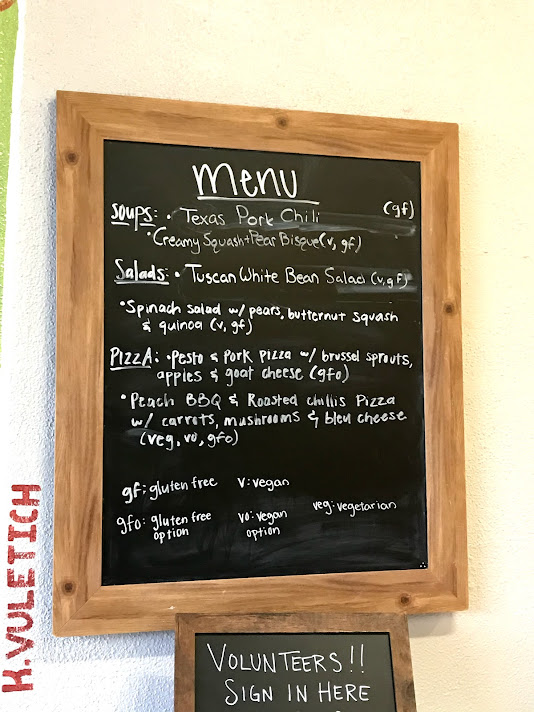 menu
Soups: • Texas Pork Chili (gf)
• Creamy Squash + Pear Bisque (v, gf)
Salads: • Tuscan White Bean Salad (v, gf)
• Spinach salad w/ pears, butternut squash
& quinoa (v, gf)
PIZZA: • Pesto & Pork pizza w/ brussel sprouts,
apples & goat cheese (gfo)
• Peach BBQ & Roasted chillis Pizza
w/ carrots, mushrooms & bleu cheese
(veg, vo, gfo)
gf: gluten free v: vegan
veg: vegetarian
gfo: gluten free
option
vo: vegan
option
K.VULETICH
VOLUNTEERS!!
SIGN IN HERE